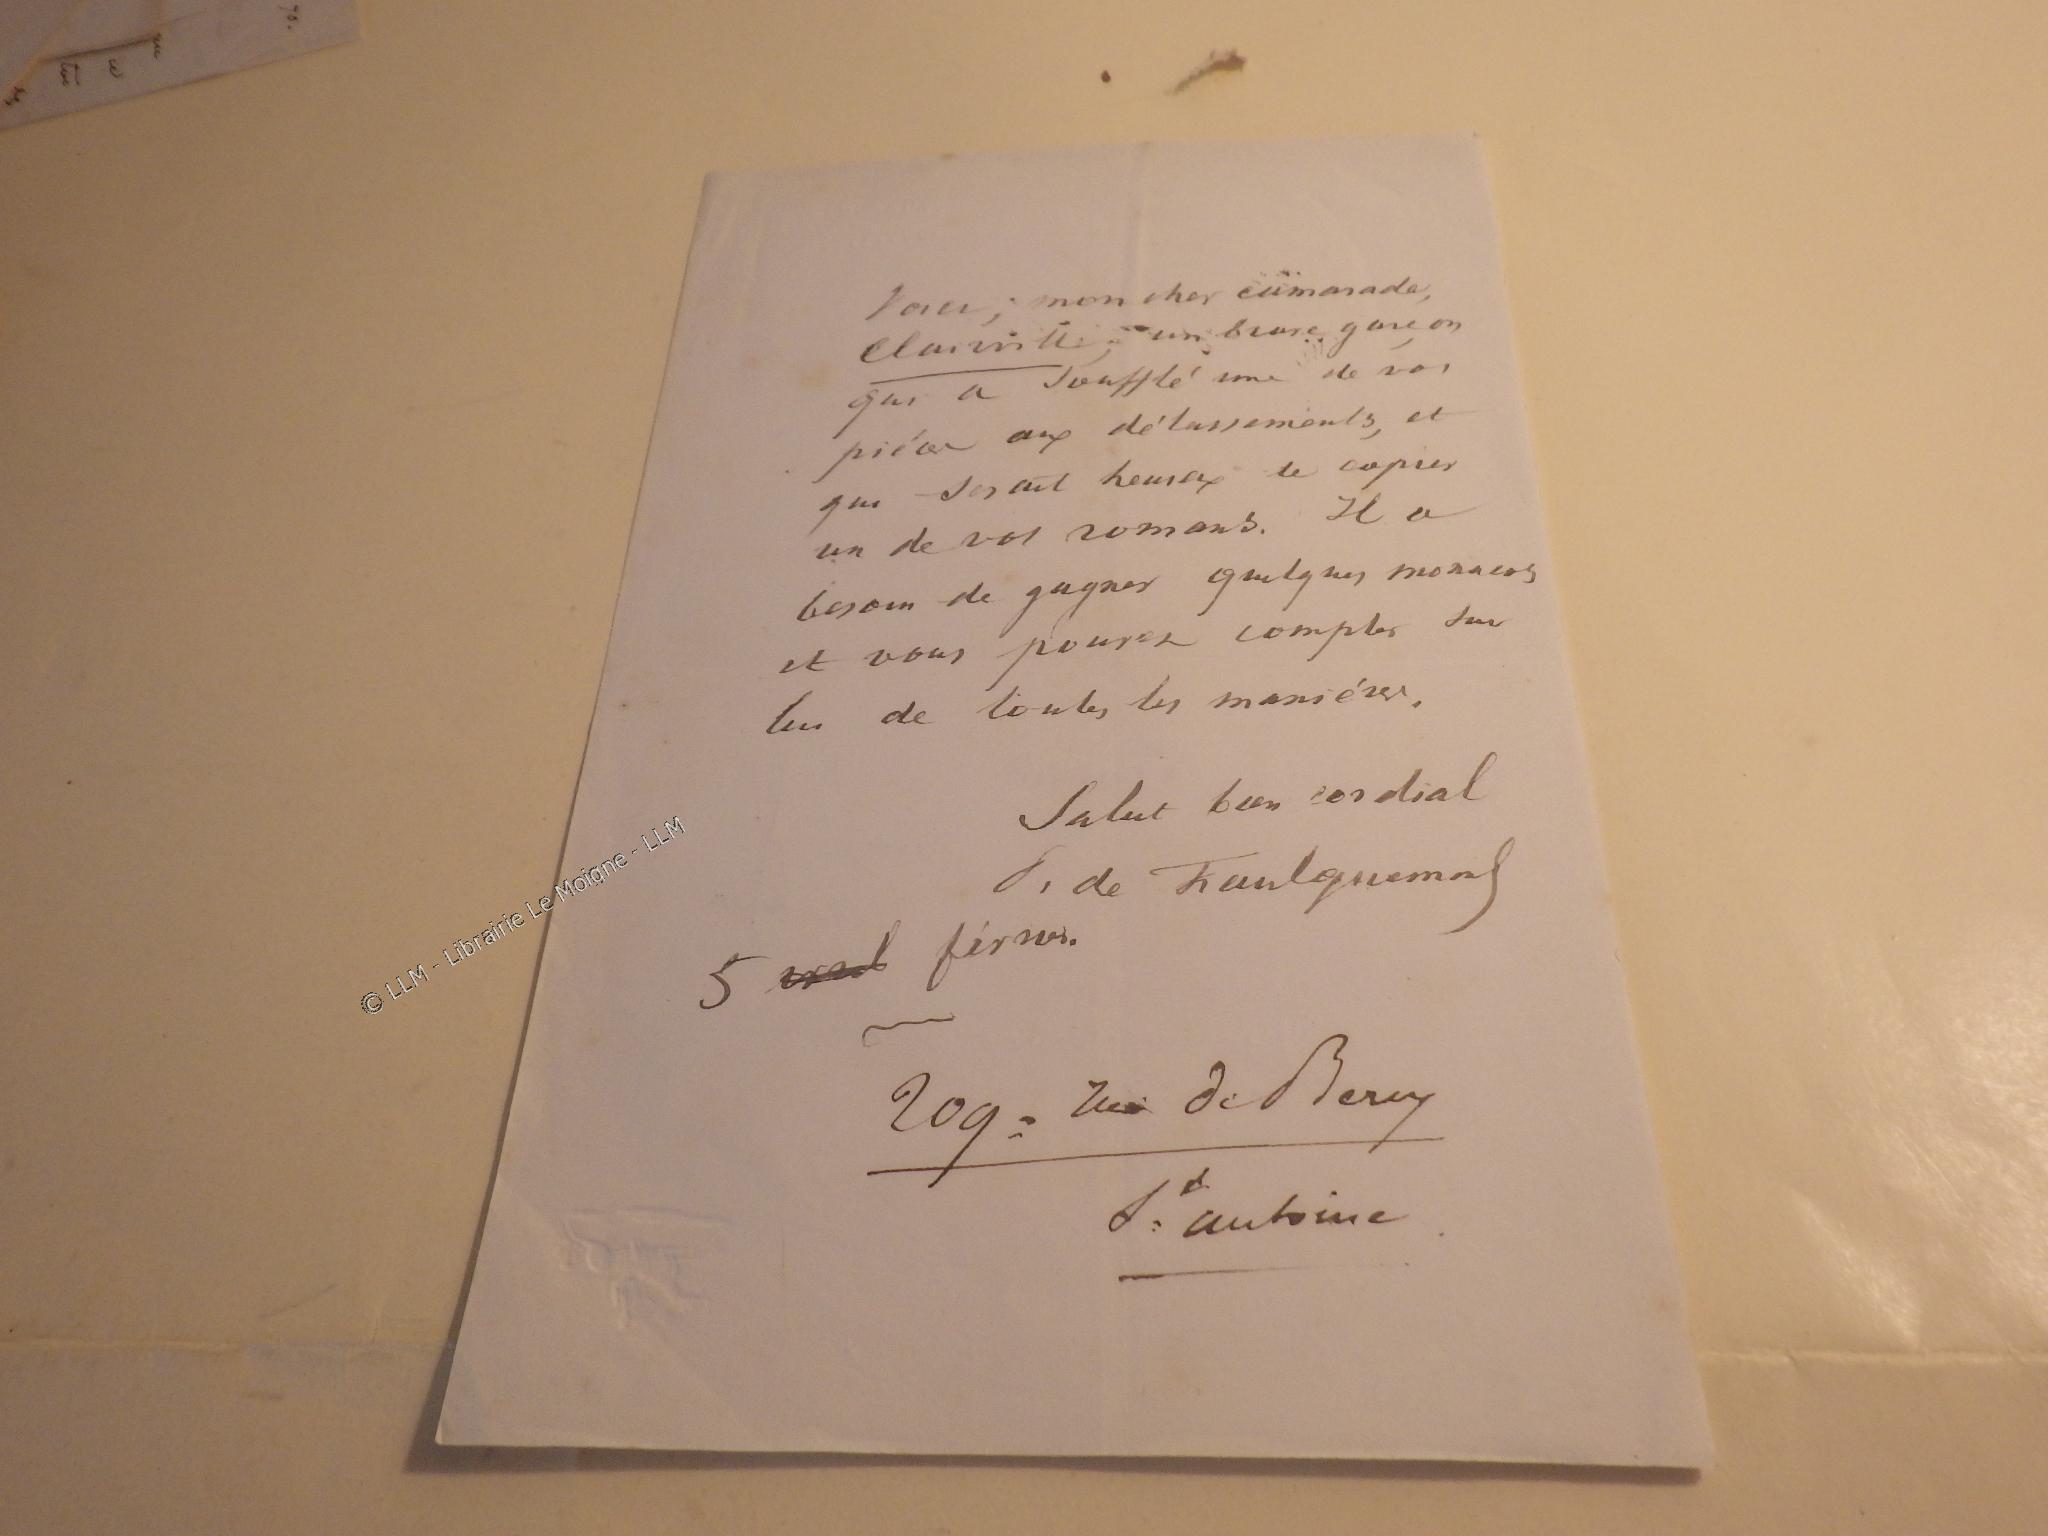 Voici, mon cher camarade,
Clairville, un brave garçon
qui a soufflé une de vos
pièces aux délassements, et
qui serait heureux de copier
un de vos romans. Il a
besoin de gagner quelques monacos
et vous pouvez compter sur
lui de toutes les manières.
Salut bien cordial
P. de Faulquemont
5 février.
209 = rue de Bercy
St. antoine
© LLM - Librairie Le Moigne - LLM